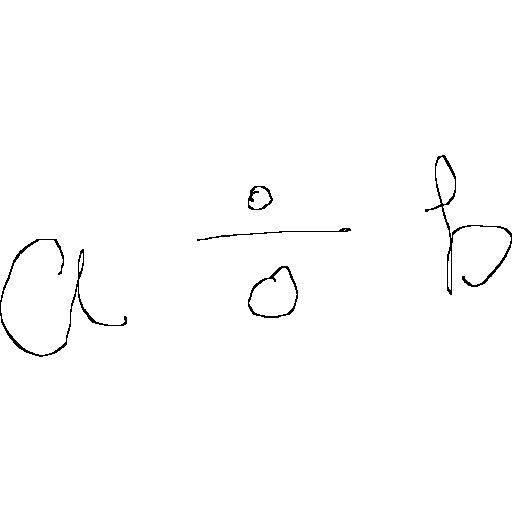 a ÷ b